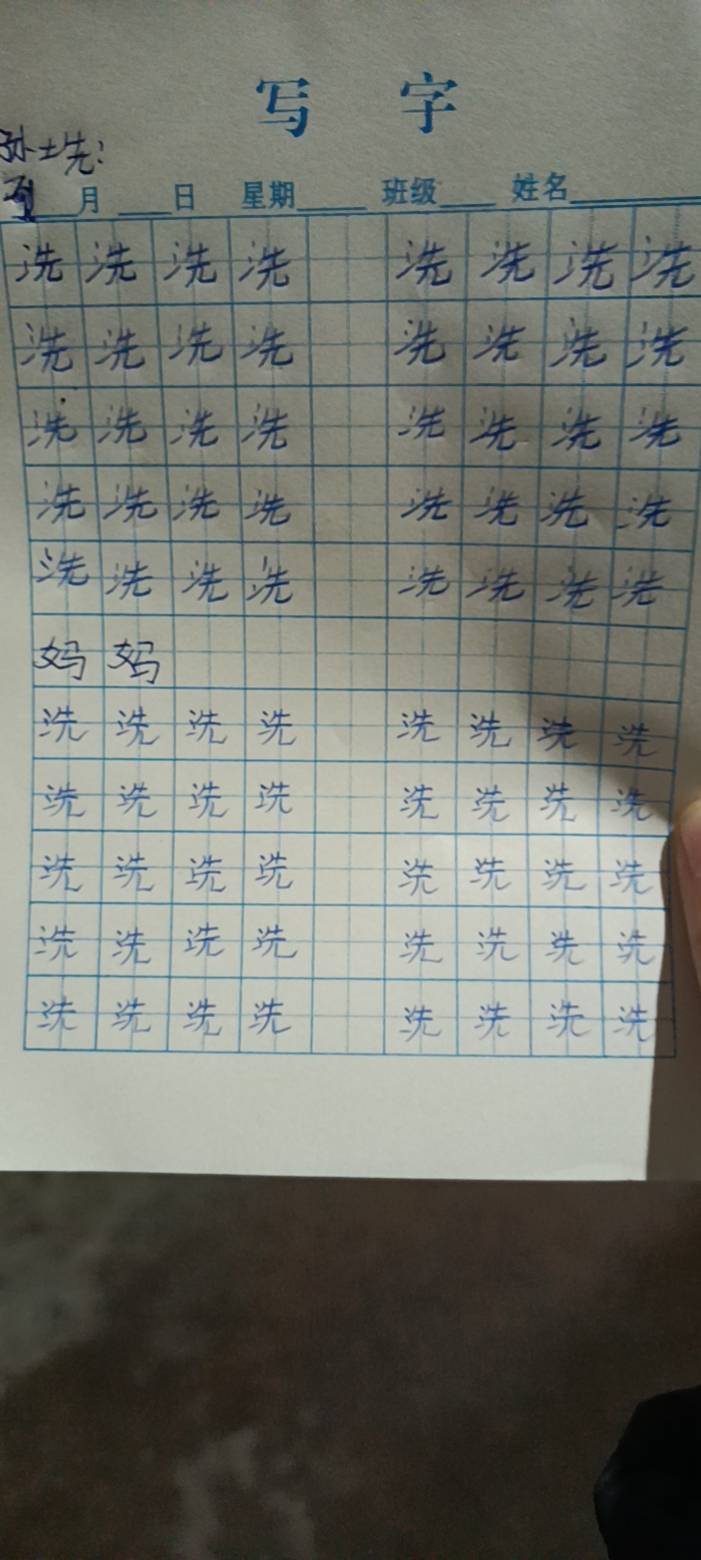 写 字
孙土先:
月 日 星期 班级 姓名
洗 洗 洗 洗 洗 洗 洗 洗
洗 洗 洗 洗 洗 洗 洗 洗
洗 洗 洗 洗 洗 洗 洗 洗
洗 洗 洗 洗 洗 洗 洗 洗
洗 洗 洗 洗 洗 洗 洗 洗
妈 妈
洗 洗 洗 洗 洗 洗 洗 洗
洗 洗 洗 洗 洗 洗 洗 洗
洗 洗 洗 洗 洗 洗 洗 洗
洗 洗 洗 洗 洗 洗 洗 洗
洗 洗 洗 洗 洗 洗 洗 洗